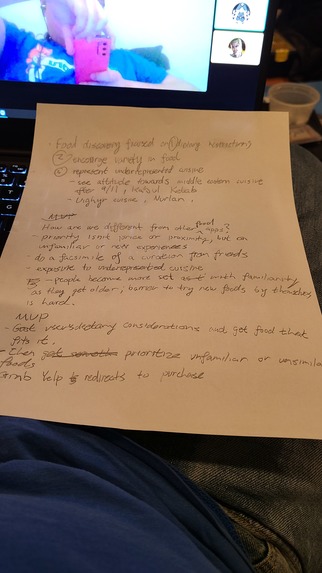 - Food discovery focused on ① dietary restrictions
② encourage variety in food
③ represent underrepresented cuisine
- see attitude towards middle eastern cuisine
after 9/11, Kebab
- Uighyr cuisine,
MVP
How are we different from other food apps?
- priority isn't price or proximity, but on
unfamiliar or new experiences
- do a facsimile of a curation from friends
- exposure to underrepresented cuisine
- people become more set with familiarity
as they get older, barrier to try new foods by themselves
is hard.
MVP
- Get users dietary considerations and get food that
fits it.
- Then prioritize unfamiliar or
foods
Yelp redirects to purchase